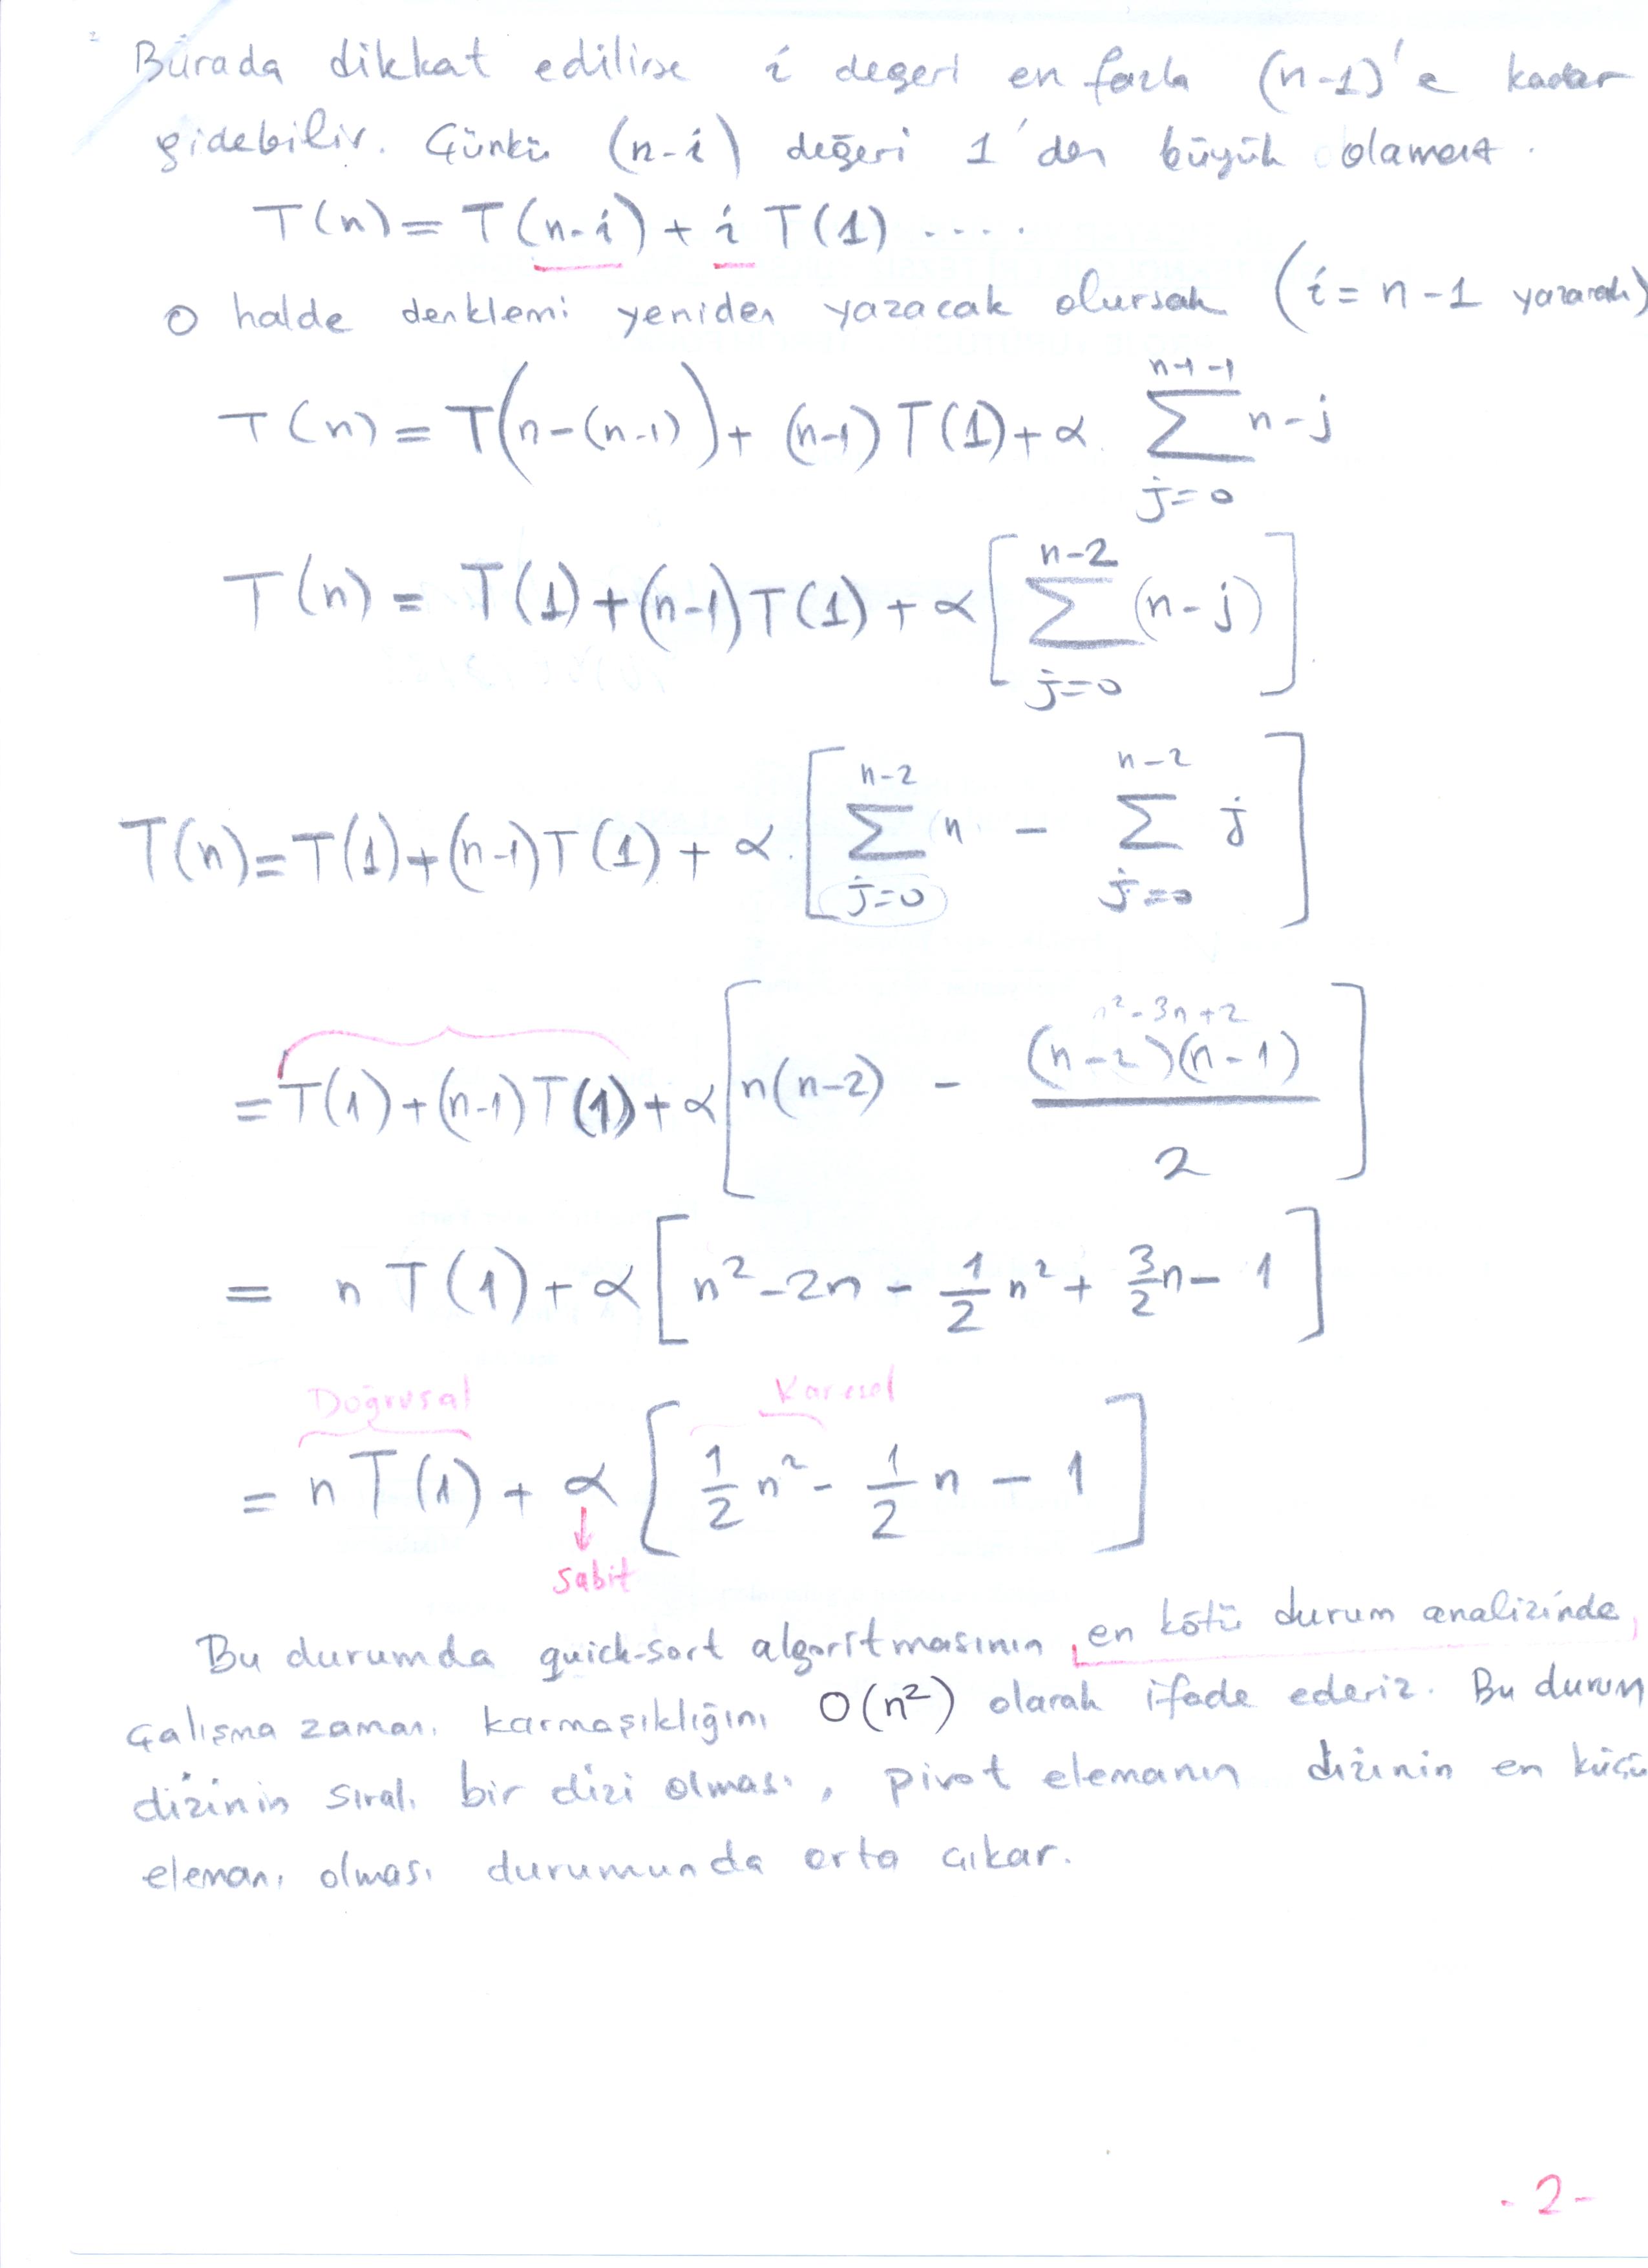 Burada dikkat edilirse i degeri en fazla (n-1)'e kadar
gidebilir. Çünkü (n-i) değeri 1'den büyük olamaz.
T(n) = T(n-i) + i T(1) ....
O halde denklemi yeniden yazacak olursak (i = n-1 yazarak)
T(n) = T(n-(n-1)) + (n-1) T(1) + α ∑_{j=0}^{n-1-1} n-j
T(n) = T(1) + (n-1) T(1) + α [ ∑_{j=0}^{n-2} (n-j) ]
T(n) = T(1) + (n-1) T(1) + α . [ ∑_{j=0}^{n-2} n - ∑_{j=0}^{n-2} j ]
n²-3n+2
= T(1) + (n-1) T(1) + α [ n(n-2) - (n-2)(n-1) / 2 ]
= n T(1) + α [ n² - 2n - 1/2 n² + 3/2 n - 1 ]
Doğrusal Karesel
= n T(1) + α [ 1/2 n² - 1/2 n - 1 ]
sabit
Bu durumda quick-sort algoritmasının en kötü durum analizinde,
çalışma zamanı karmaşıklığını O(n²) olarak ifade ederiz. Bu durum
dizinin sıralı bir dizi olması, pivot elemanın dizinin en küçü
elemanı olması durumunda orta çıkar.
- 2 -